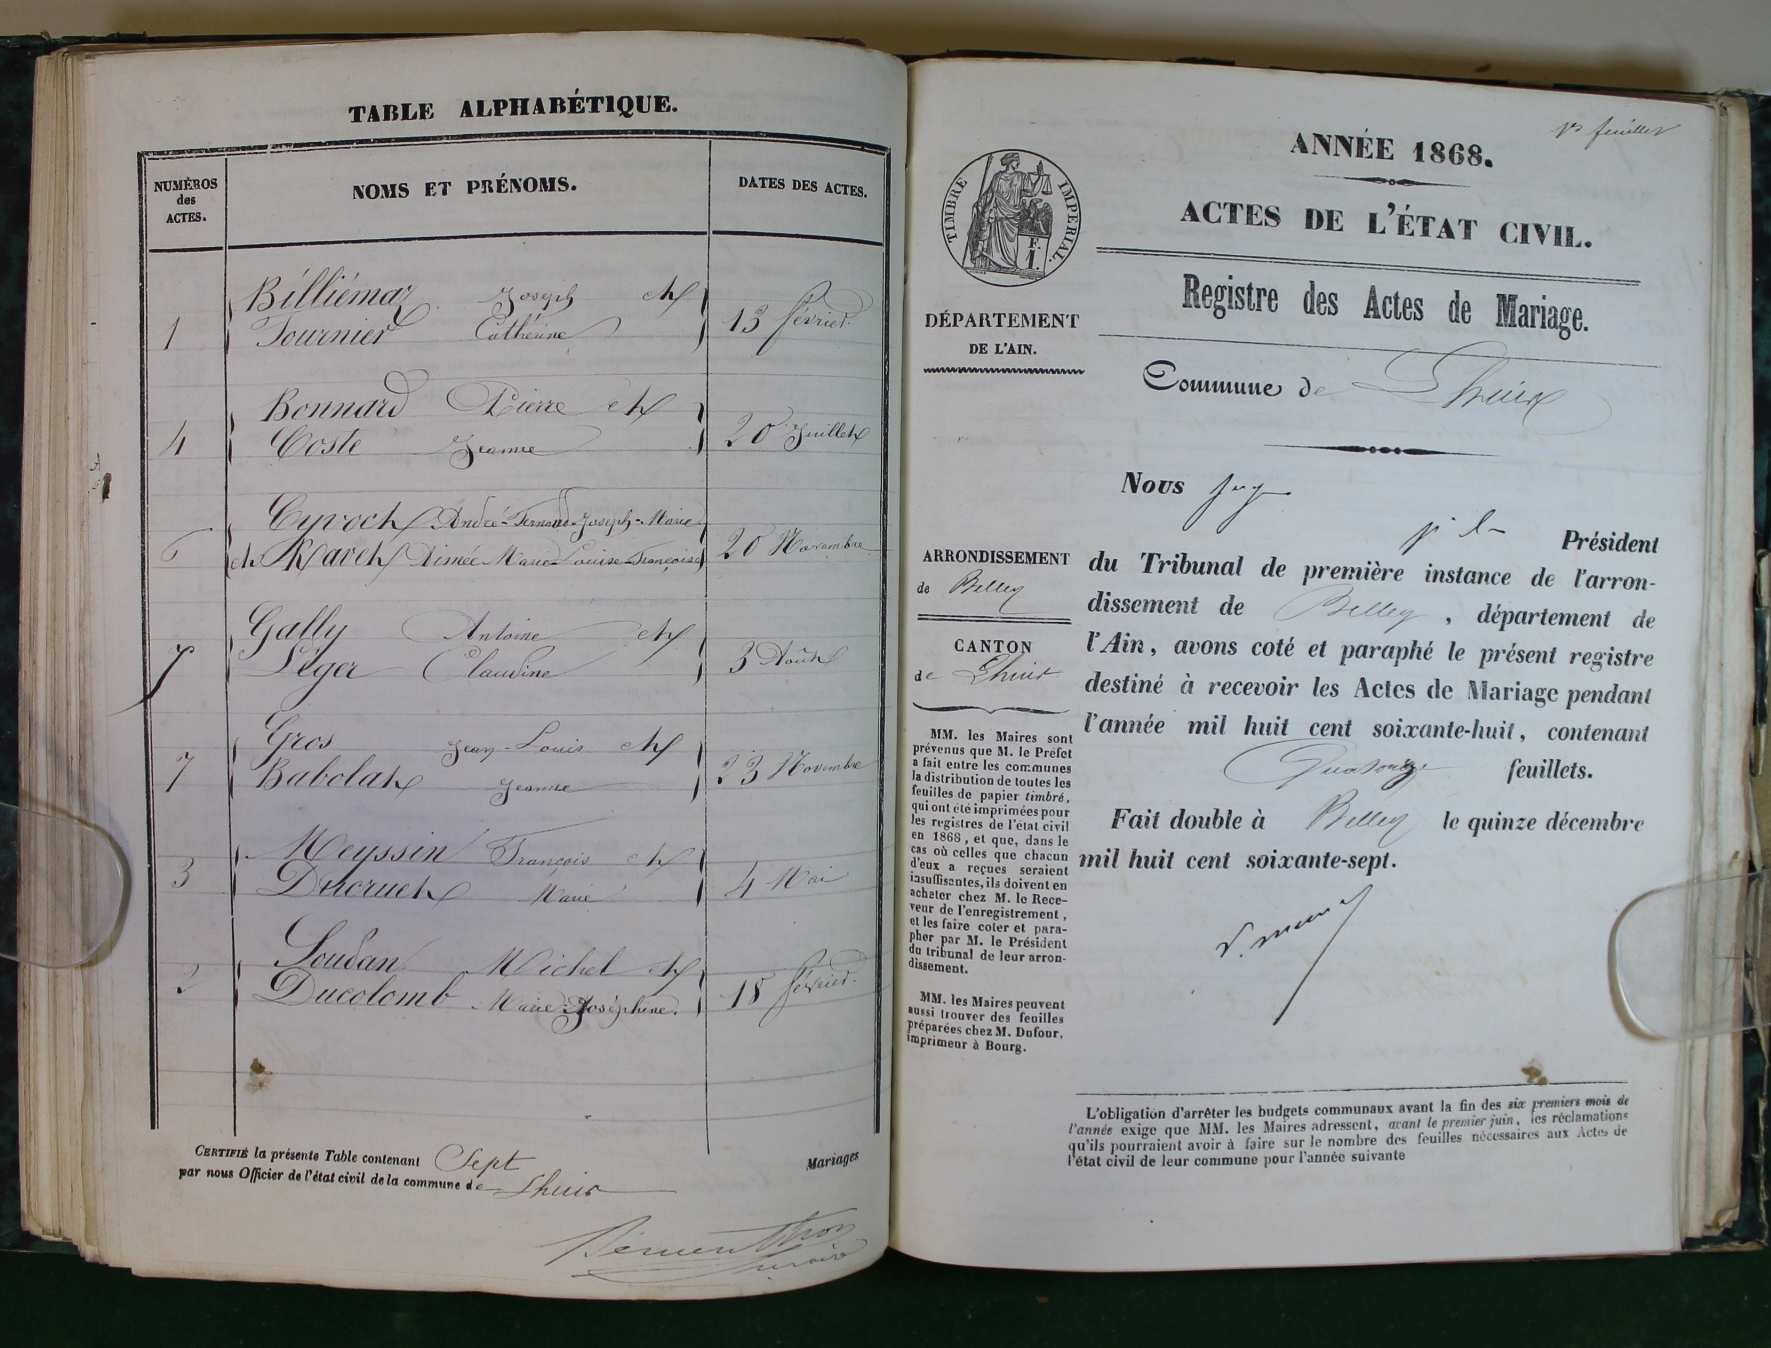 TABLE ALPHABÉTIQUE.
NUMÉROS
des
ACTES.
NOMS ET PRÉNOMS.
DATES DES ACTES.
Billiémaz Joseph et
1 Tournier Catherine 13 février
Bonnard Pierre et
4 Coste Jeanne 20 Juillet
Cyvoct André-Fernand-Joseph-Marie
6 et Ravet Aimée Marie-Louise-Françoise 20 Novembre
Gally Antoine et
Léger Claudine 3 Août
Gros Jean-Louis et
7 Babolat Jeanne 23 Novembre
Meyssin François et
3 Ducruet Marie 4 Mai
Soudan Michel et
2 Ducolomb Marie-Joséphine. 18 février
CERTIFIÉ la présente Table contenant Sept Mariages
par nous Officier de l'état civil de la commune de Lhuis
1er feuillet
ANNÉE 1868.
ACTES DE L'ÉTAT CIVIL.
TIMBRE IMPÉRIAL.
F.
1.
Registre des Actes de Mariage.
DÉPARTEMENT
DE L'AIN.
Commune de Lhuis
Nous juge
Président
ARRONDISSEMENT
de Belley
CANTON
de Lhuis
du Tribunal de première instance de l'arron-
dissement de Belley, département de
l'Ain, avons coté et paraphé le présent registre
destiné à recevoir les Actes de Mariage pendant
l'année mil huit cent soixante-huit, contenant
Quatorze feuillets.
Fait double à Belley le quinze décembre
mil huit cent soixante-sept.
MM. les Maires sont
prévenus que M. le Préfet
a fait entre les communes
la distribution de toutes les
feuilles de papier timbré,
qui ont été imprimées pour
les registres de l'état civil
en 1868, et que, dans le
cas où celles que chacun
d'eux a reçues seraient
insuffisantes, ils doivent en
acheter chez M. le Rece-
veur de l'enregistrement,
et les faire coter et para-
pher par M. le Président
du tribunal de leur arron-
dissement.
MM. les Maires peuvent
aussi trouver des feuilles
préparées chez M. Dufour,
imprimeur à Bourg.
L'obligation d'arrêter les budgets communaux avant la fin des six premiers mois de
l'année exige que MM. les Maires adressent, avant le premier juin, les réclamations
qu'ils pourraient avoir à faire sur le nombre des feuilles nécessaires aux Actes de
l'état civil de leur commune pour l'année suivante